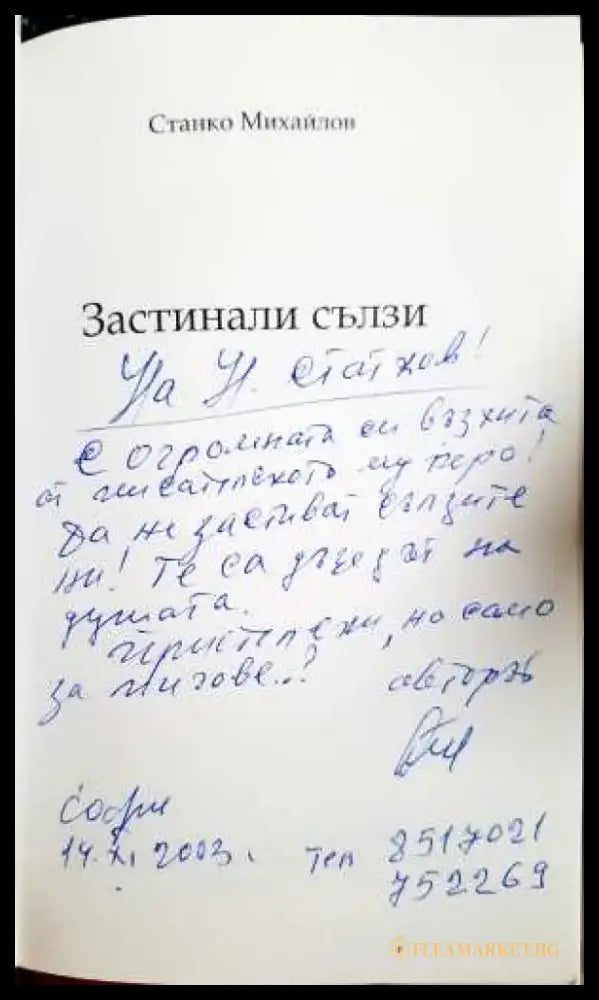 Станко Михайлов
Застинали сълзи
На Н. Статков!
С огромната си възхита
от писателското му перо!
Да не застиват сълзите
ни! Те са дъждът на
душата.
но само
за мигове..?
авторът
София
14.XI.2003г.
тел 8517021
752269
FLEAMARKET.BG